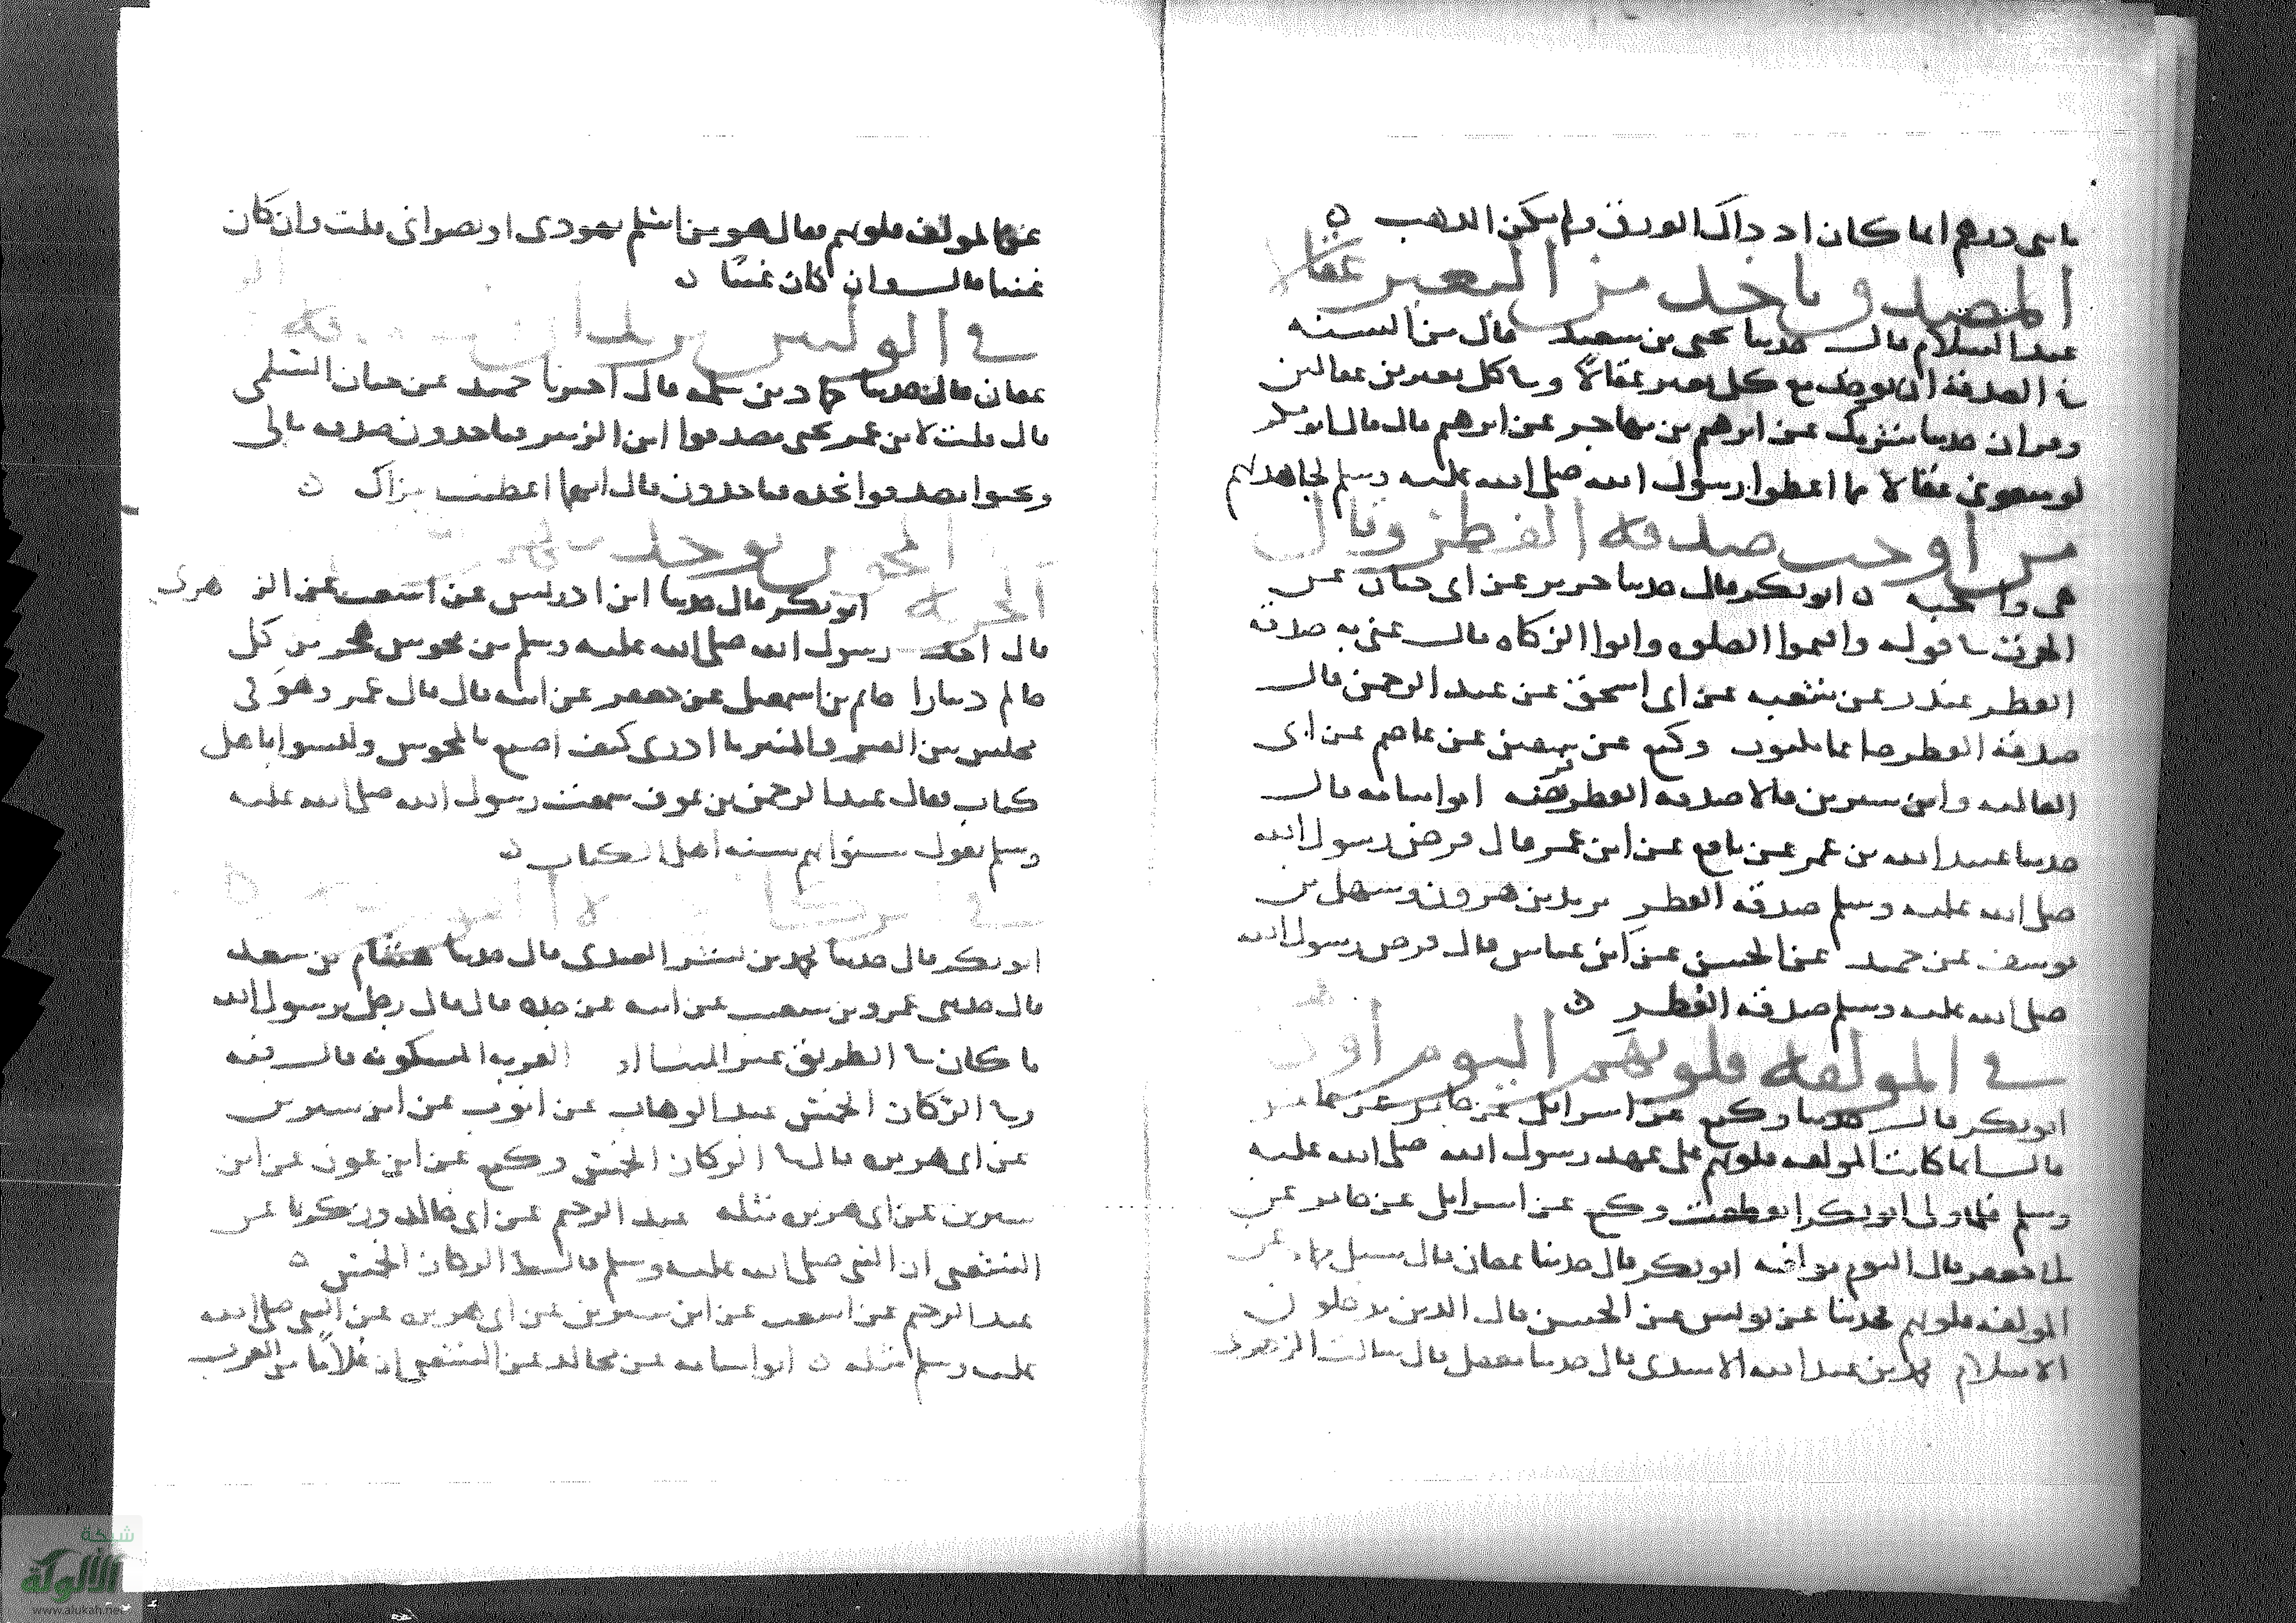 مائتي درهم انما كان اذ ذاك الورق ولم يكن الذهب ه
المصدق ياخذ من البعير عقالا
عبد السلام قال حدثنا يحيى بن سعيد قال من السنه
في الصدقة ان يوخذ مع كل بعير عقالا وبه كل بعيرين عقالين
وقران حدثنا شريك عن ابرهيم بن مهاجر عن ابرهيم قال قال ابو بكر
لو منعوني عقالا مما اعطوا رسول الله صلى الله عليه وسلم لجاهدتهم
من اوجب صدقة الفطر وقال
هي واجبه ه ابو بكر قال حدثنا جرير عن ابي حيان عن
الحرث في قوله واقيموا الصلوه واتوا الزكاه قال عني به صدقة
الفطر غندر عن شعبه عن ابي اسحق عن عبد الرحمن قال
صدقة الفطر صاعا وكيع عن سفين عن عاصم عن ابي
العاليه وابن سيرين قالا صدقه الفطر فريضه ابو اسامه قال
حدثنا عبيد الله بن عمر عن نافع عن ابن عمر قال فرض رسول الله
صلى الله عليه وسلم صدقه الفطر يزيد بن هرون وسهل بن
يوسف عن حميد عن الحسن عن ابن عباس قال فرض رسول الله
صلى الله عليه وسلم صدقه الفطر ه
في المولفه قلوبهم اليوم او
ابو بكر قال حدثنا وكيع عن اسرائيل عن جابر عن عامر
قال انما كانت المولفه قلوبهم على عهد رسول الله صلى الله عليه
وسلم فلما ولي ابو بكر انقطعت وكيع عن اسرائيل عن جابر عن
ابي جعفر قال اليوم ابو بكر قال حدثنا عفان قال
المولفه قلوبهم حدثنا عن يونس عن الحسن قال الذين يدخلون
الاسلام محمد بن عبد الله الاسدي قال حدثنا معقل قال سالت الزهري
عن المولفه قلوبهم فقال هو من اسلم يهودي او نصراني قلت وان كان
غنيا قال وان كان غنيا ه
في الوليين
عفان قال حدثنا حماد بن سلمه قال اخبرنا حميد عن حيان السلمي
قال قلت لابن عمر يجي مصدقوا ابن الزبير فياخذون صدقه مالي
ويجي مصدقوا نجده فياخذون قال ايهما اعطيت اجزاك ه
المجوس يوخذ منهم
الجزيه ابو بكر قال حدثنا ابن ادريس عن اشعث عن الزهري
قال اخذ رسول الله صلى الله عليه وسلم من مجوس هجر من كل
حالم دينارا حاتم بن اسمعيل عن جعفر عن ابيه قال قال عمر وهو في
مجلس بين القبر والمنبر ما ادري كيف اصنع بالمجوس وليسوا باهل
كتاب فقال عبد الرحمن بن عوف سمعت رسول الله صلى الله عليه
وسلم يقول سنوا بهم سنه اهل الكتاب ه
في الركاز
ابو بكر قال حدثنا محمد بن بشر العبدي قال حدثنا هشام بن سعد
قال حدثني عمرو بن شعيب عن ابيه عن جده قال قال رجل يرسول الله
ما كان في الطريق غير الميتا او القريه المسكونه قال فيه
وفي الركاز الخمس عبد الوهاب عن ايوب عن ابن سيرين
عن ابي هريره قال في الركاز الخمس وكيع عن ابن عون عن ابن
سيرين عن ابي هريره مثله عبد الرحيم عن ابي خالد وزكريا عن
الشعبي ان النبي صلى الله عليه وسلم قال في الركاز الخمس ه
عبد الرحيم عن اشعث عن ابن سيرين عن ابي هريره عن النبي صلى الله
عليه وسلم مثله ه ابو اسامه عن مجالد عن الشعبي ان غلاما من العرب
شبكة
الألوكة
www.alukah.net